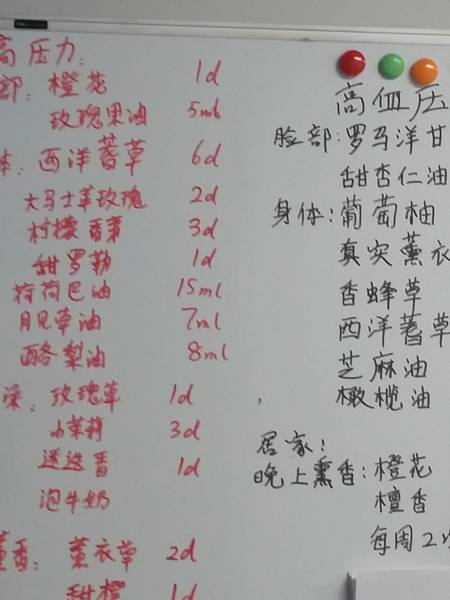 高压力:
部: 橙花 1d
玫瑰果油 5ml
体: 西洋蓍草 6d
大马士革玫瑰 2d
柠檬香茅 3d
甜罗勒 1d
荷荷巴油 15ml
月见草油 7ml
酪梨油 8ml
澡: 玫瑰草 1d
小茉莉 3d
迷迭香 1d
泡牛奶
薰香: 薰衣草 2d
甜橙 1d
高血压
脸部: 罗马洋甘
甜杏仁油
身体: 葡萄柚
真实薰衣
香蜂草
西洋蓍草
芝麻油
橄榄油
居家:
晚上熏香: 橙花
檀香
每周2